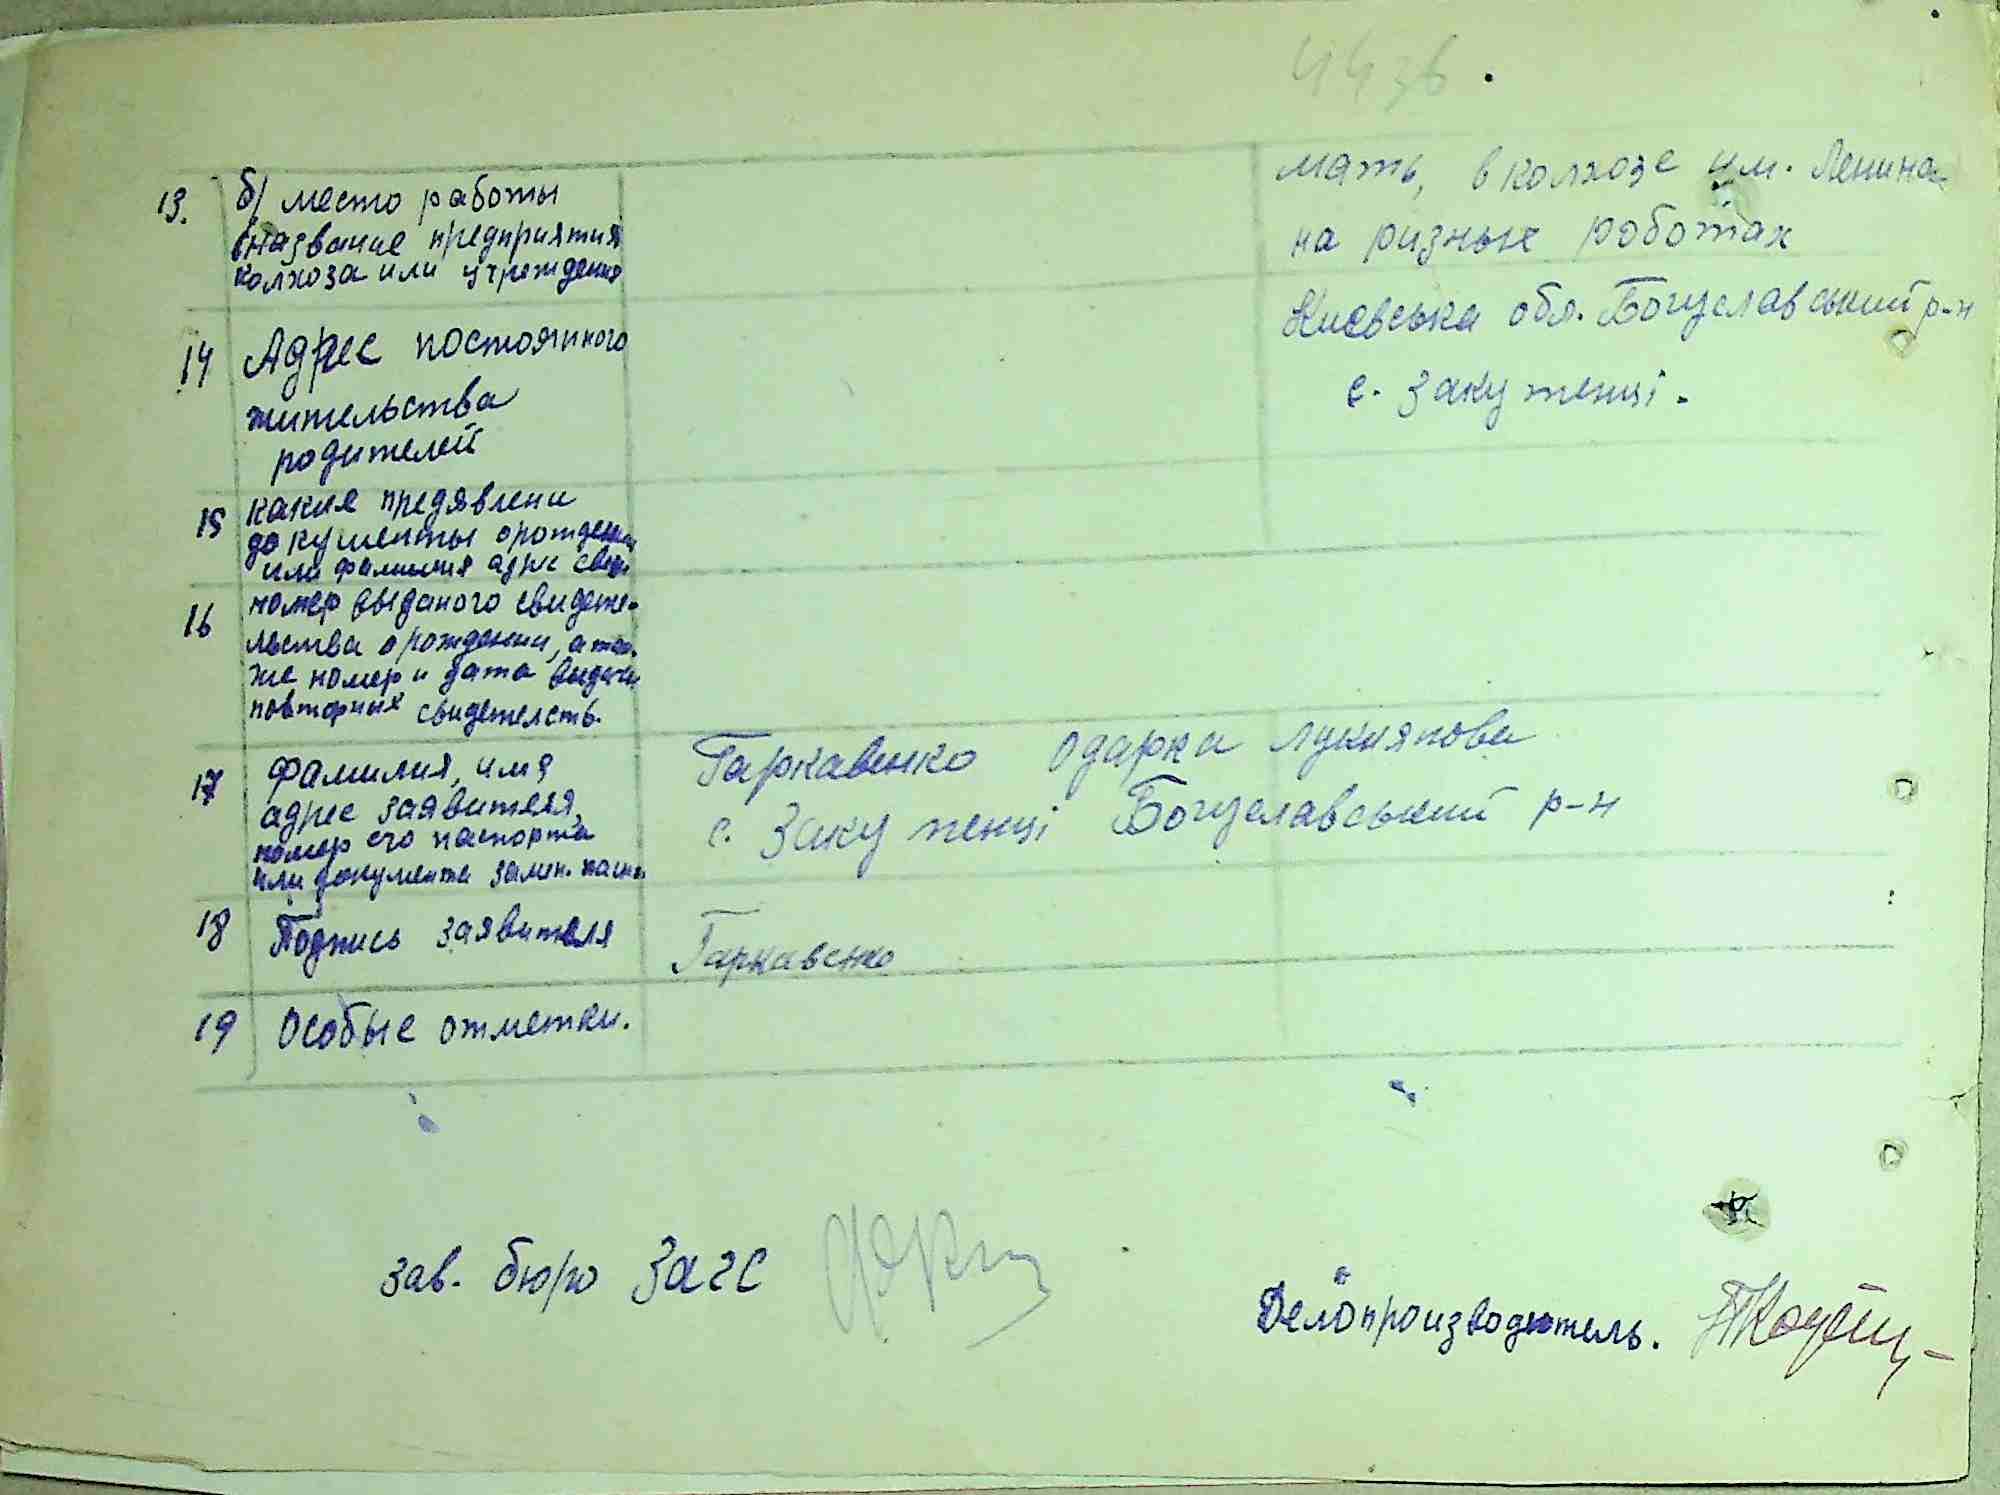 44зв.
13. б/ место работы
(название предприятия
колхоза или учреждения
мать, в колхозе им. Ленина
на ризных роботах
14 Адрес постоянного
жительства
родителей
Киевська обл. Богуславський р-н
с. Закутенці.
15 какие предявлени
документы орождении
или фамилия адрес свид.
16 номер выданого свидете-
льства орождении, а так-
же номер и дата выдачи
повторных свидетелств.
17 Фамилия, имя
адрес заявителя,
номер его паспорта
или документа замен. пасп.
Гаркавенко Одарка Лукиянова
с. Закутенці Богуславський р-н
18 Подпись заявителя
Гаркавенко
19 Особые отметки.
зав. бюро Загс
Делопроизводитель.